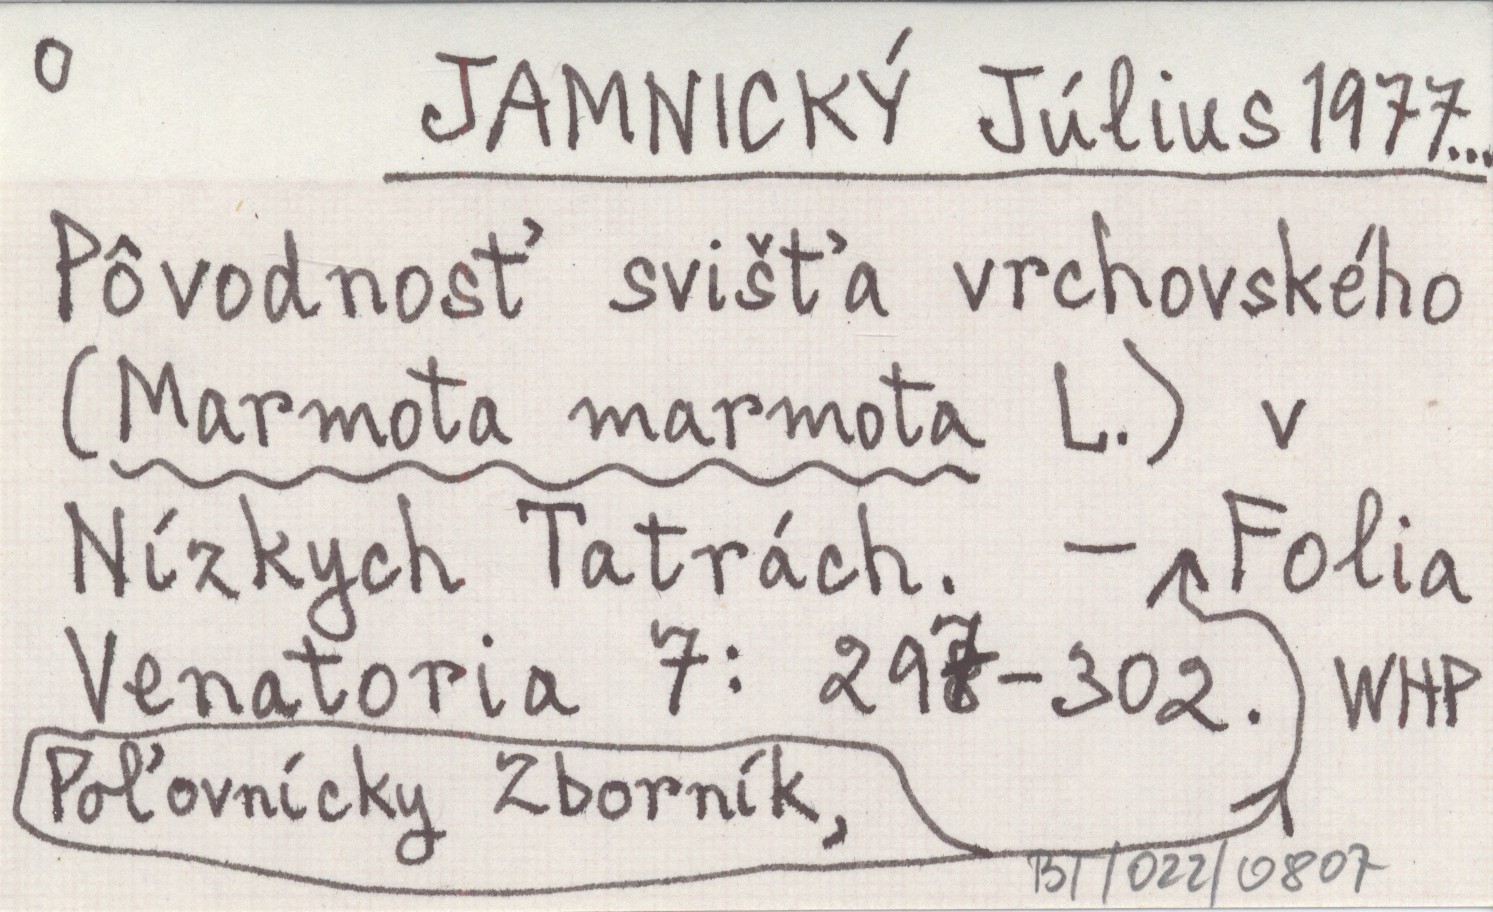 O
JAMNICKÝ Július 1977...
Pôvodnosť svišťa vrchovského
(Marmota marmota L.) v
Nízkych Tatrách. – Folia
Venatoria 7: 297-302. WHP
Poľovnícky Zborník,
BT/022/0807